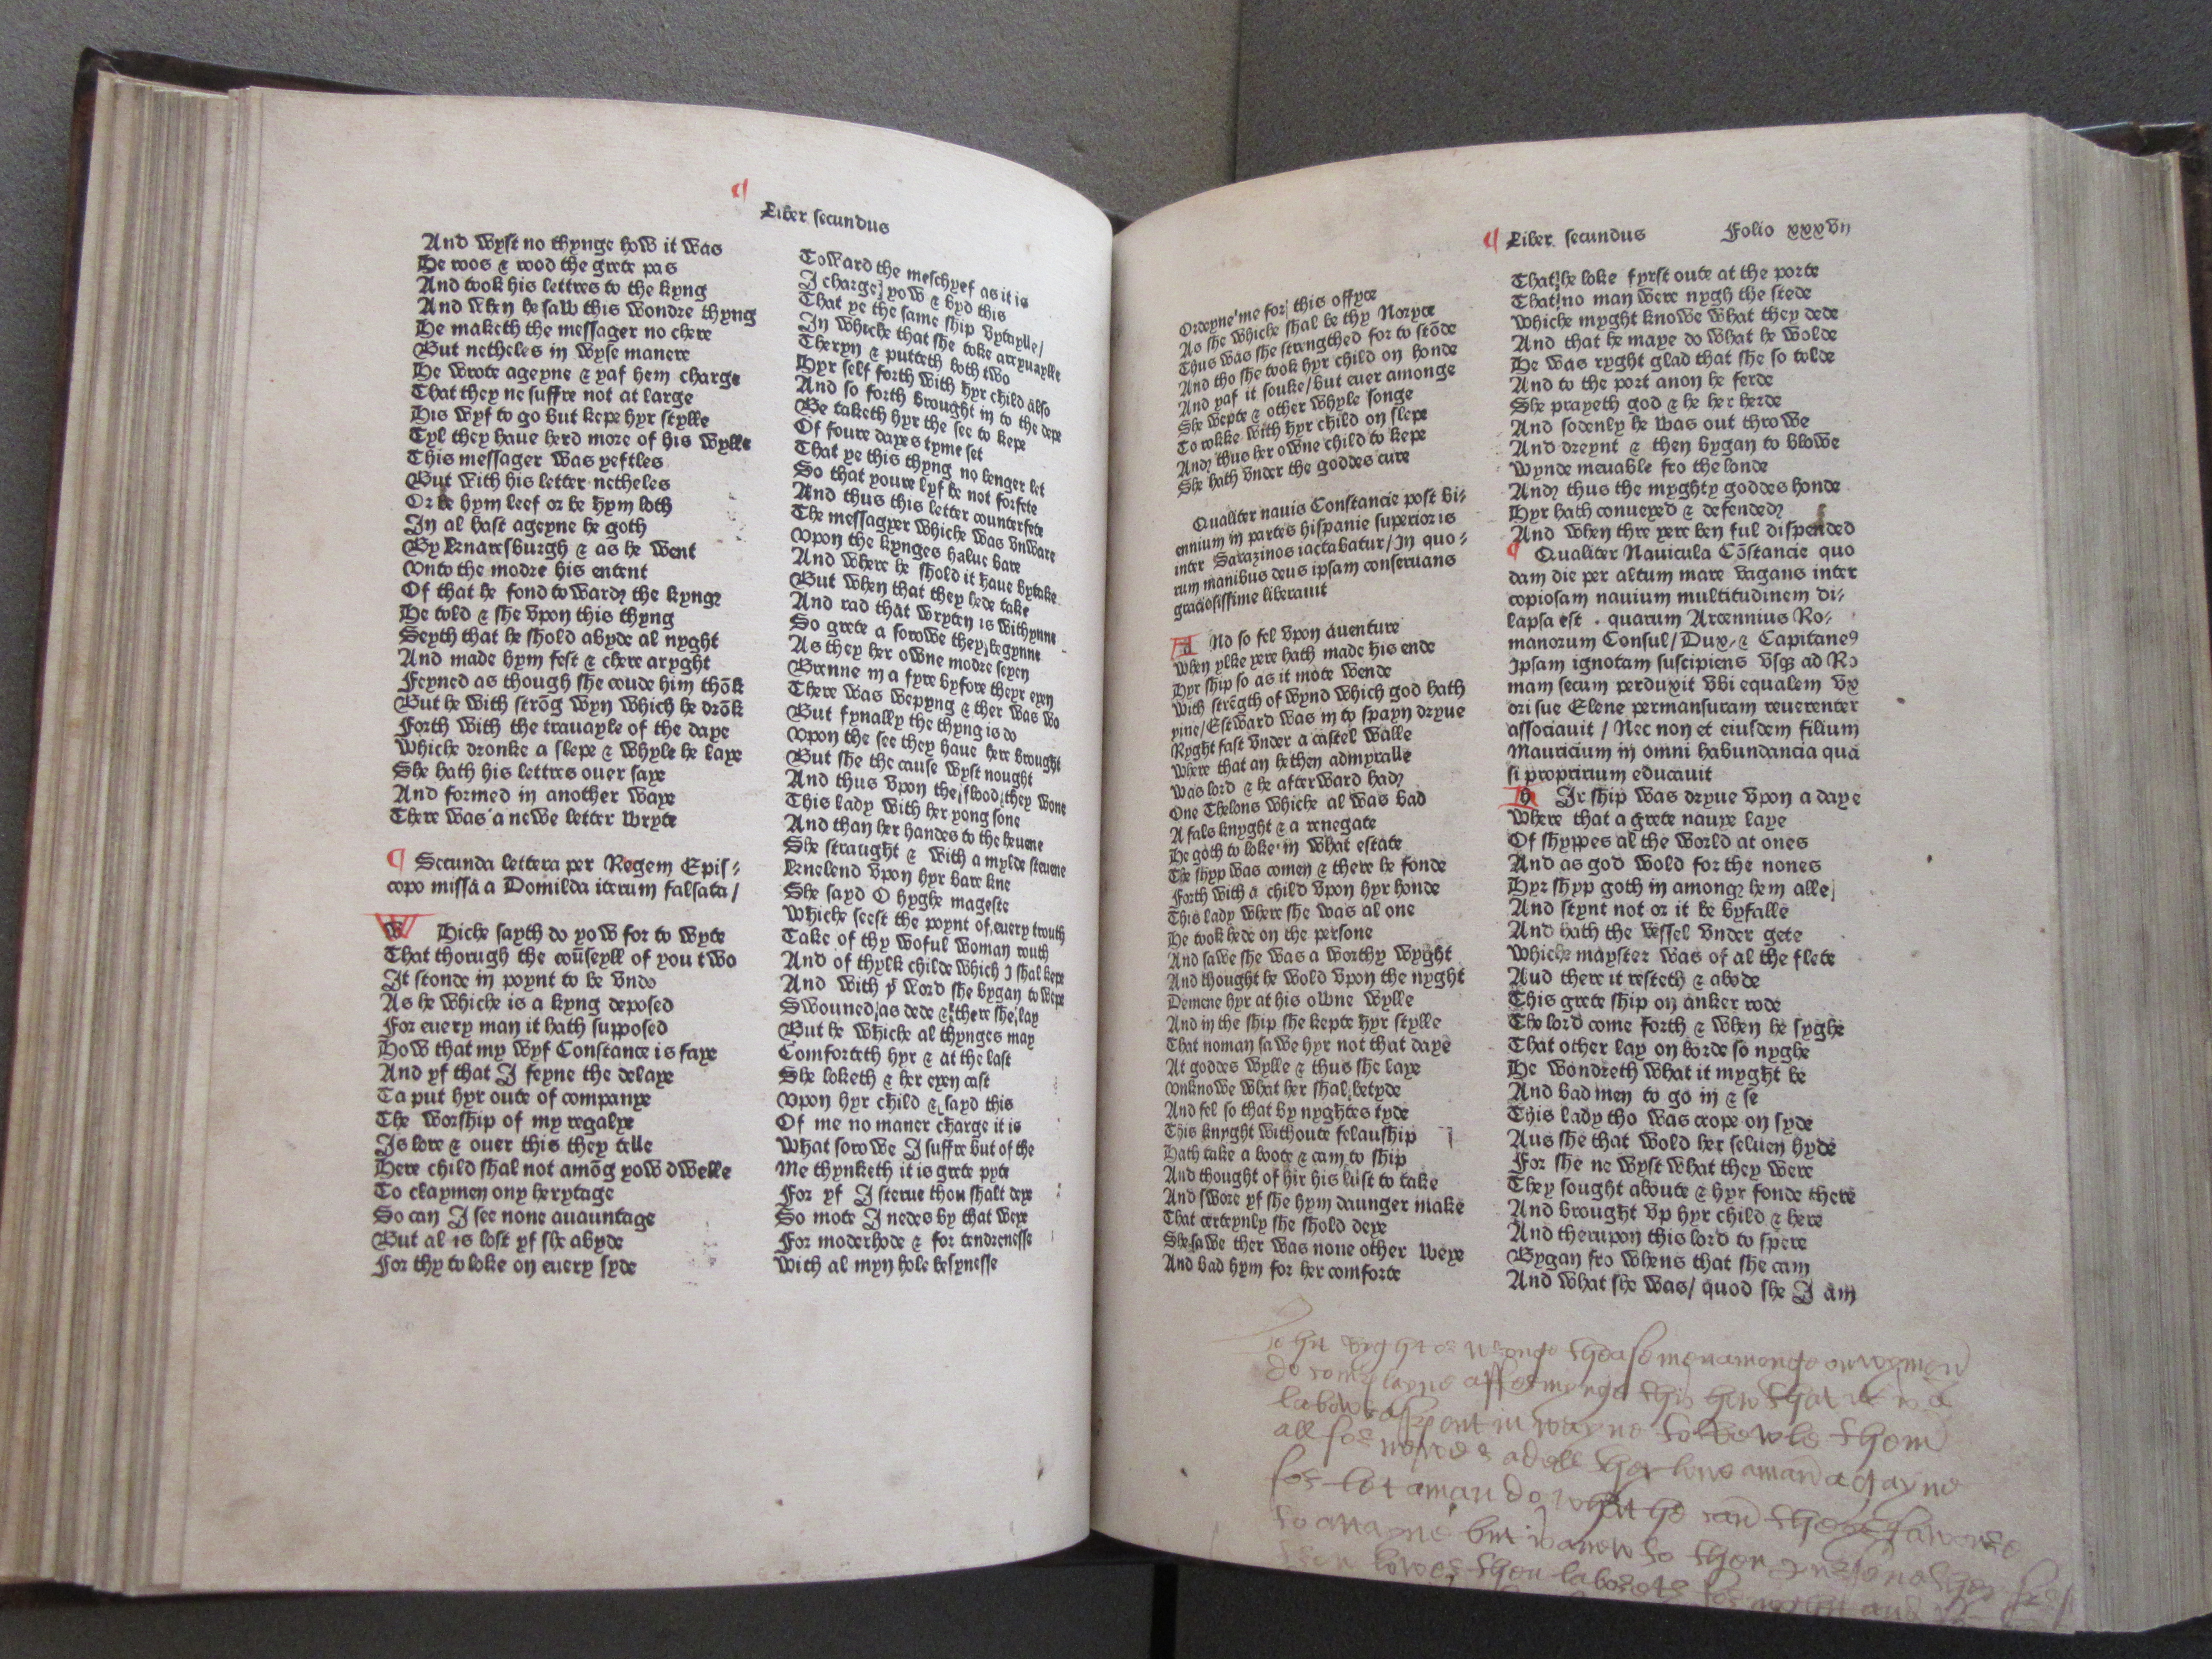 Liber secundus
And wyst no thynge how it was
He roos & rood the grete pas
And took his lettres to the kyng
And when he saw this wondre thyng
He maketh the messager no chere
But netheles in wyse manere
He wrote ageyne & yaf hem charge
That they ne suffre not at large
His wyf to go but kepe hyr stylle
Tyl they haue herd more of his wylle
This messager was yeftles
But with his letter netheles
Or be hym leef or be hym loth
In al hast ageyne he goth
By knaresburgh & as he went
Vnto the modre his entent
Of that he fond toward the kyng
He told & she vpon this thyng
Seyth that he shold abyde al nyght
And made hym fest & chere aryght
Feyned as though she coude him thōk
But he with strōg wyn which he drōk
Forth with the trauayle of the daye
Whiche dronke a slepe & whyle he laye
She hath his lettres ouer saye
And formed in another waye
There was a newe letter wryte
¶ Secunda lettera per Regem Epis⸗
copo missa a Domilda iterum falsata /
W Hiche sayth do yow for to wyte
That thorugh the coūseyll of you two
It stonde in poynt to be vndo
As he whiche is a kyng deposed
For euery man it hath supposed
How that my wyf Constance is faye
And yf that I feyne the delaye
Ta put hyr oute of companye
The worship of my regalye
Is lore & ouer this they telle
Here child shal not amōg yow dwelle
To claymen ony herytage
So can I see none auauntage
But al is lost yf she abyde
For thy to loke on euery syde
Toward the meschyef as it is
I charge yow & byd this
That ye the same ship vytaylle/
In whiche that she toke arryuaylle
Theryn & putteth both two
Hyr self forth with hyr child also
And so forth brought in to the depe
Be taketh hyr the see to kepe
Of foure dayes tyme set
That ye this thyng no lenger let
So that youre lyf be not forfete
And thus this letter counterfete
The messagyer whiche was vnware
Vpon the kynges halue bare
And where he shold it haue bytake
But when that they hede take
And rad that wryten is withynne
So grete a sorowe they begynne
As they her owne modre seyen
Brenne in a fyre byfore theyr eyen
There was wepyng & ther was wo
But fynally the thyng is do
Vpon the see they haue here brought
But she the cause wyst nought
And thus vpon the flood they wone
This lady with her yong sone
And than her handes to the heuene
She straught & with a mylde steuene
Knelend vpon hyr bare kne
She sayd O hyghe mageste
Whiche seest the poynt of euery trouth
Take of thy woful woman routh
And of thylk childe which I shal kepe
And with yͭ word she bygan to wepe
Swouned as dede & there she lay
But he whiche al thynges may
Comforteth hyr & at the last
She loketh & her eyen cast
Vpon hyr child & sayd this
Of me no maner charge it is
What sorowe I suffre but of the
Me thynketh it is grete pyte
For yf I sterue thou shalt deye
So mote I nedes by that weye
For moderhode & for tendrenesse
With al myn hole besynesse
¶ Liber secundus Folio xxxvii
Ordeyne me for this offyce
As she whiche shal be thy Noryce
Thus was she strengthed for to stōde
And tho she took hyr child on honde
And yaf it souke/but euer amonge
She wepte & other whyle songe
To rokke with hyr child on slepe
And thus her owne child to kepe
She hath vnder the goddes cure
Qualiter nauis Constancie post bi⸗
ennium in partes hispanie superioris
inter Sarazinos iactabatur/In quo⸗
rum manibus deus ipsam conseruans
graciosissime liberauit
A Nd so fel vpon auenture
When ylke yere hath made his ende
Hyr ship so as it mote wende
With strēgth of wynd which god hath
yiue/Estward was in to spayn dryue
Ryght fast vnder a castel walle
Where that an hethen admyralle
Was lord & he afterward had
One Thelous whiche al was bad
A fals knyght & a renegate
He goth to loke in what estate
The shyp was comen & there he fonde
Forth with a child vpon hyr honde
This lady where she was al one
He took hede on the persone
And sawe she was a worthy wyght
And thought he wold vpon the nyght
Demene hyr at his owne wylle
And in the ship she kepte hyr stylle
That noman sawe hyr not that daye
At goddes wylle & thus she laye
Vnknowe what her shal betyde
And fel so that by nyghtes tyde
This knyght withoute felauship
Hath take a boote & cam to ship
And thought of hir his lust to take
And swore yf she hym daunger make
That certeynly she shold deye
She sawe ther was none other weye
And bad hym for her comforte
That he loke fyrst oute at the porte
That no man were nygh the stede
Whiche myght knowe what they dede
And that he maye do what he wolde
He was ryght glad that she so tolde
And to the port anon he ferde
She prayeth god & he her herde
And sodenly he was out throwe
And dreynt & then bygan to blowe
Wynde meuable fro the londe
And thus the myghty goddes honde
Hyr hath conueyed & defended
And when thre yere ben ful dispended
¶ Qualiter Nauicula Cōstancie quo
dam die per altum mare vagans inter
copiosam nauium multitudinem di⸗
lapsa est . quarum Arcennius Ro⸗
manorum Consul/Dux/& Capitaneꝰ
Ipsam ignotam suscipiens vsqꝫ ad Ro
mam secum perduxit vbi equalem vx
ori sue Elene permansuram reuerenter
associauit / Nec non et eiusdem filium
Mauricium in omni habundancia qua
si propririum educauit
H Ir ship was dryue vpon a daye
Where that a grete nauye laye
Of shyppes al the world at ones
And as god wold for the nones
Hyr shyp goth in among hem alle
And stynt not or it be byfalle
And hath the vessel vnder gete
Whiche mayster was of al the flete
Aud there it resteth & abode
This grete ship on anker rode
The lord come forth & when he syghe
That other lay on borde so nyghe
He wondreth what it myght be
And bad men to go in & se
This lady tho was crope on syde
Aus she that wold her seluen hyde
For she ne wyst what they were
They sought aboute & hyr fonde there
And brought vp hyr child & here
And therupon this lord to spere
Bygan fro whens that she cam
And what she was/ quod she I am
ryght or wronge thease men amonge on women
do complayne affermynge this how that it is a
labour spent in vayne to love wele them
for let a man do what he can